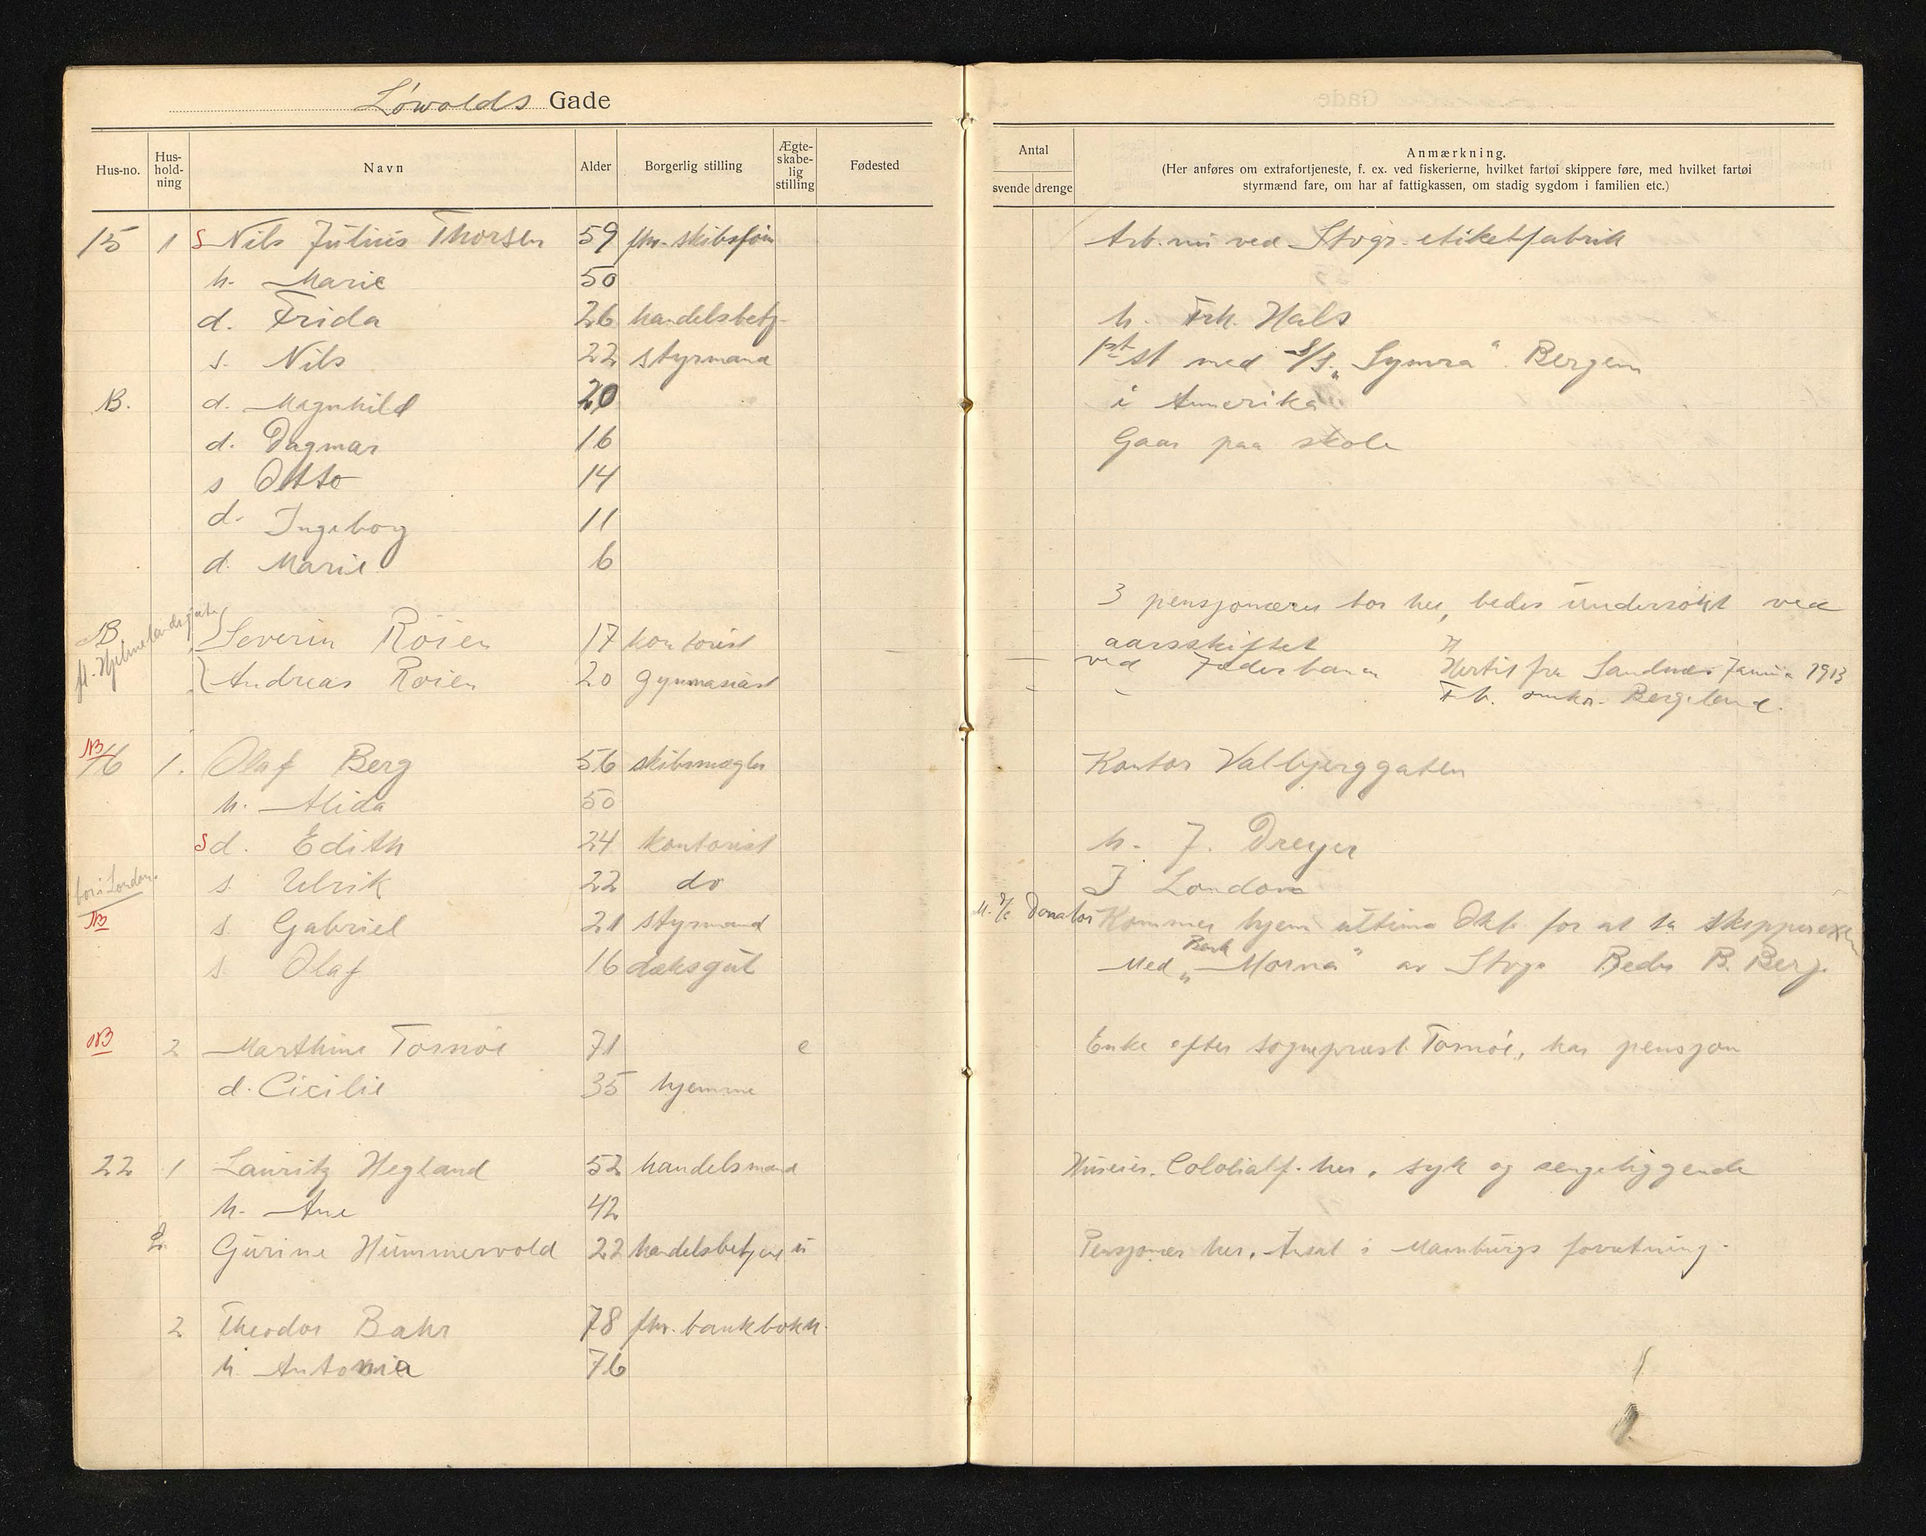 Løwolds Gade
Hus-no. Hus-hold-ning Navn Alder Borgerlig stilling Ægte-skabe-lig stilling Fødested
Antal svende drenge
Anmærkning.
(Her anføres om extrafortjeneste, f. ex. ved fiskerierne, hvilket fartøi skippere føre, med hvilket fartøi
styrmænd fare, om har af fattigkassen, om stadig sygdom i familien etc.)
15 1 S Nils Julius Thorsen 59 fhv. skibsfør. Arb. nu ved Stvgr. etiketfabrik
h. Marie 50
d. Frida 26 handelsbetj. h. Frk. Hals
s. Nils 22 styrmand 1ste st med S/S „Symra“ Bergen
NB. d. Magnhild 20 i Amerika
d. Dagmar 16 Gaar paa skole
s Otto 14
d. Ingeborg 11
d. Marie 6
3 pensjonærer bor her, bedes undersøkt ved
aarsskiftet
NB Severin Röien 17 kontorist ved Jæderbanen Hertil fra Sandnes Januar 1913
fl. Hjelmelandsgate Andreas Röien 20 gymnasiast - - F. h. enkefr. Bergeland.
NB 16 1. Olaf Berg 56 skibsmægler Kontor Valbjerggaten
h. Alida 50
S d. Edith 24 kontorist h. J. Dreyer
bor i London. s. Ulrik 22 do I London
NB s. Gabriel 21 styrmand M. S/S Donator Kommer hjem ultimo Okt. for at ta skipperexam
s. Olaf 16 dæksgut Med Bark „Morna“ av Stvgr Reder B. Berg.
NB 2 Marthine Tornöe 71 e Enke efter sogneprest Tornöe, har pensjon
d. Cicilie 35 hjemme
22 1 Lauritz Hegland 52 handelsmand Huseier. Colonialf. her. syk og sengeliggende
h. Ane 42
L. Gurine Hummervold 22 handelsbetjent u Pensjonær her. Ansat i Mamburgs forretning.
2 Theodor Bahr 78 fhv. bankbokh.
h Antonia 76